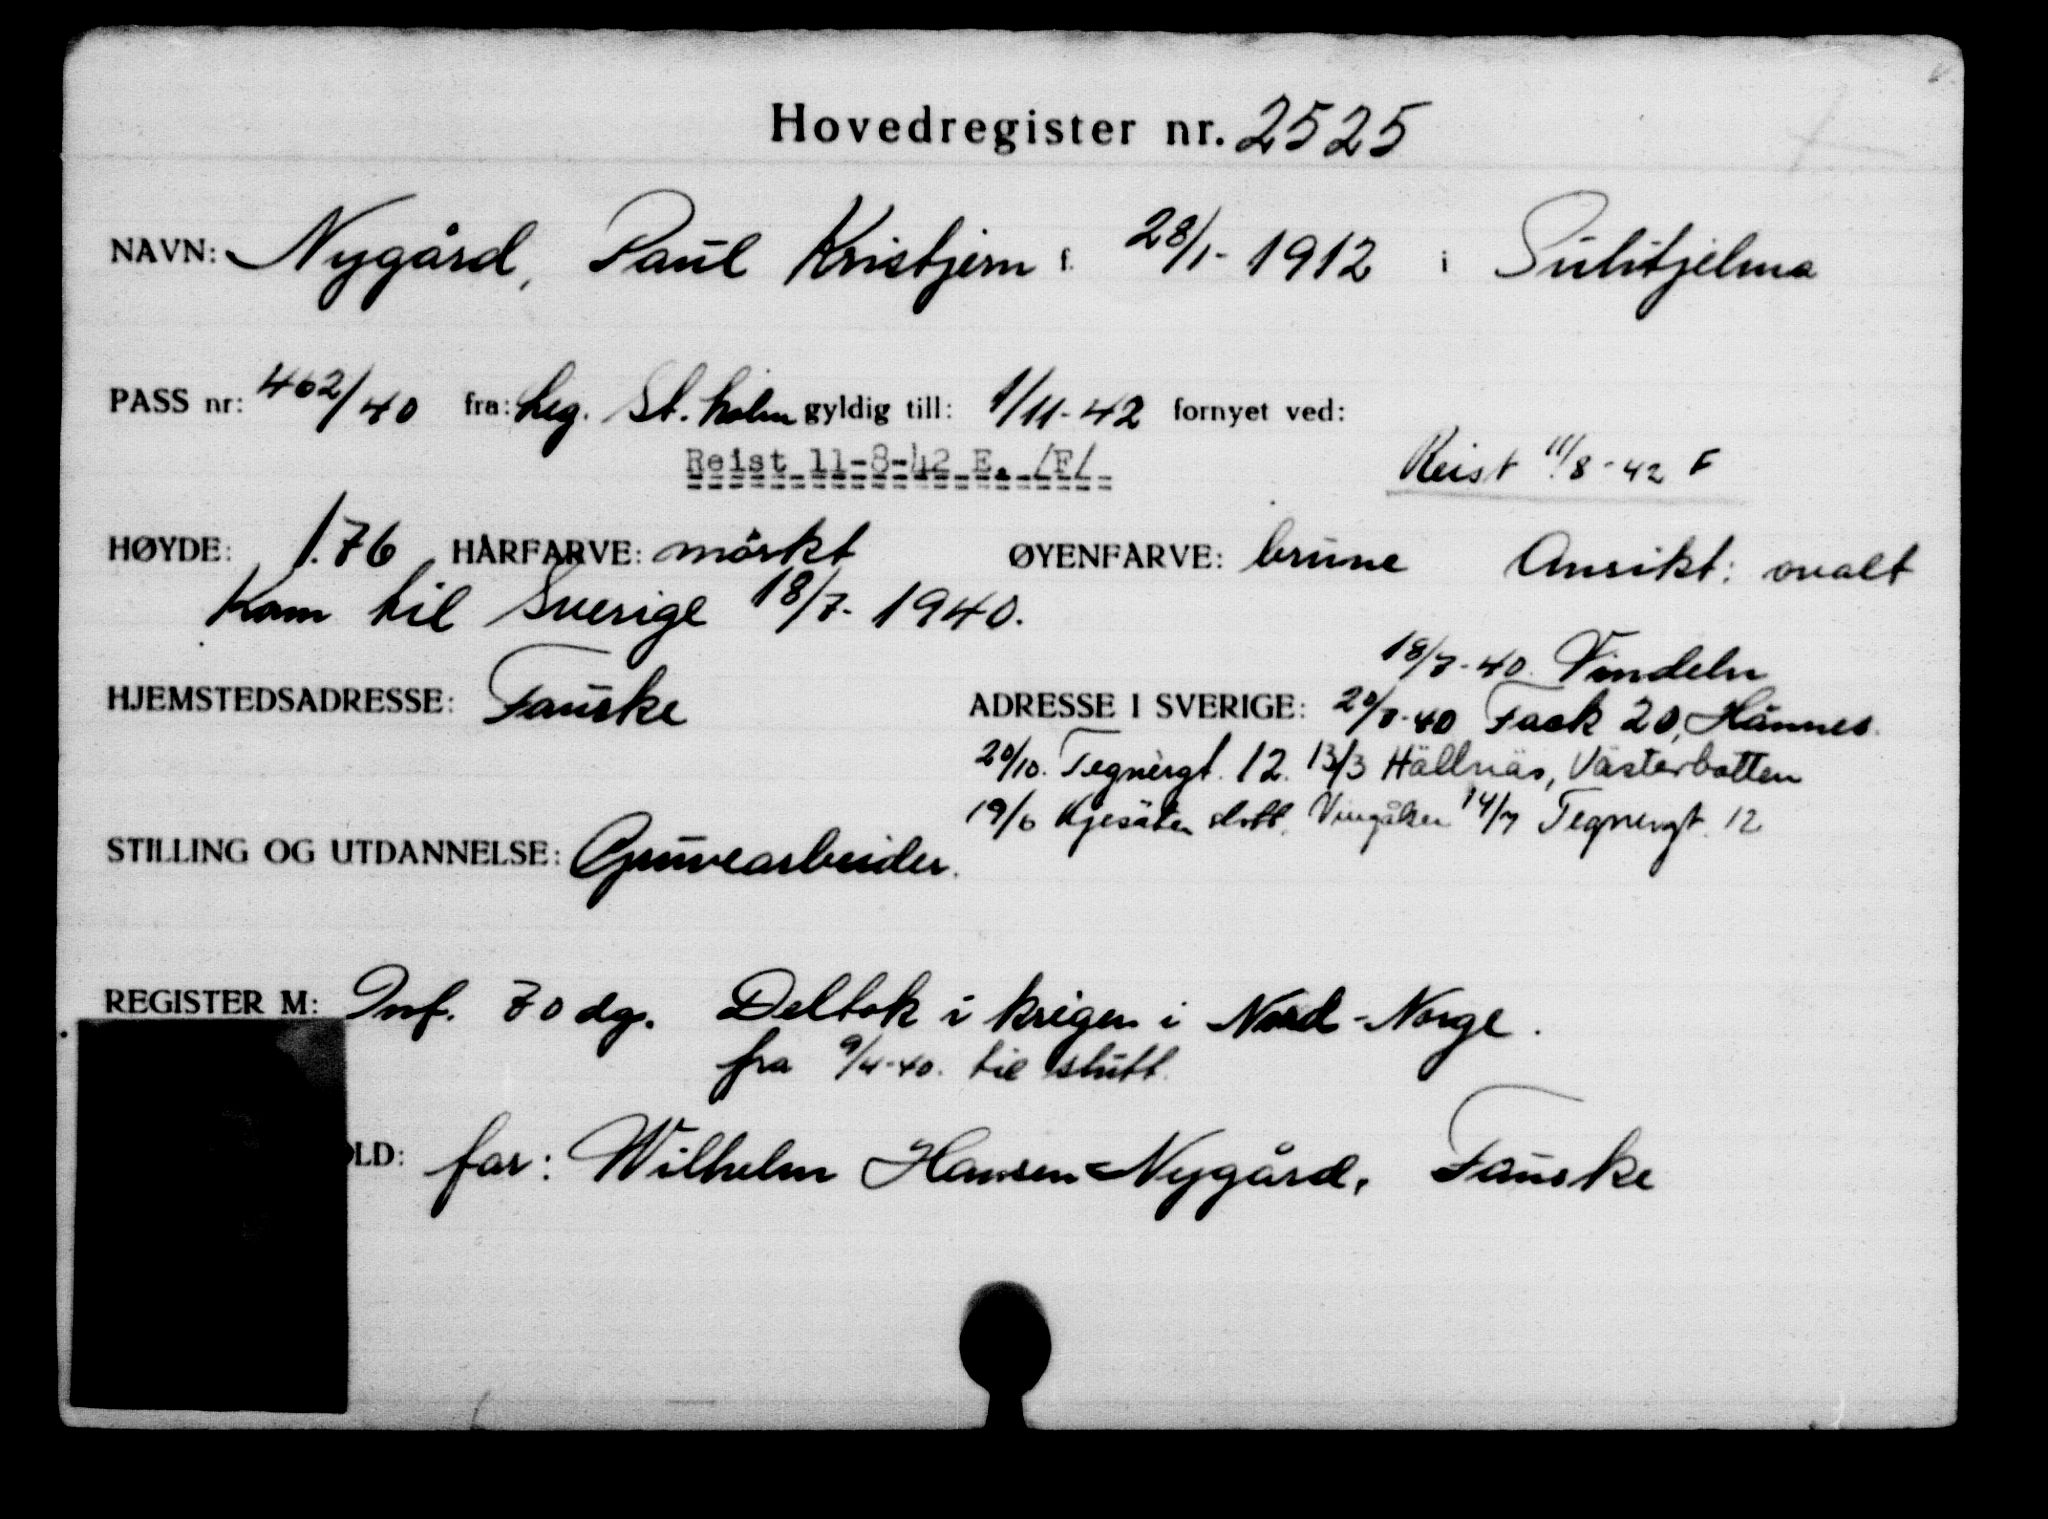 Hovedregister nr. 2525
NAVN: Nygård, Paul Kristjern f. 28/1- 1912 i Sulitjelma
PASS nr: 462/40 fra: Leg. St.holm gyldig till: 1/11-42 fornyet ved:
Reist 11-8-42 E. /F/ Reist 11/8-42 F
HØYDE: 1.76 HÅRFARVE: mörkt ØYENFARVE: brune Ansikt: ovalt
Kom til Sverige 18/7- 1940.
18/7-40. Vindeln
HJEMSTEDSADRESSE: Fauske ADRESSE I SVERIGE: 20/8-40 Fack 20, Hånnes.
20/10. Tegnérgt. 12. 13/3 Hällnäs, Västerbotten
19/6 Kjesäter slott, Vingåker 14/7 Tegnergt. 12
STILLING OG UTDANNELSE: Gruvearbeider.
REGISTER M: Inf. 70 dg. Deltok i krigen i Nord-Norge.
fra 9/4-40. til slutt.
OLD: far: Wilhelm Hansen-Nygård, Fauske